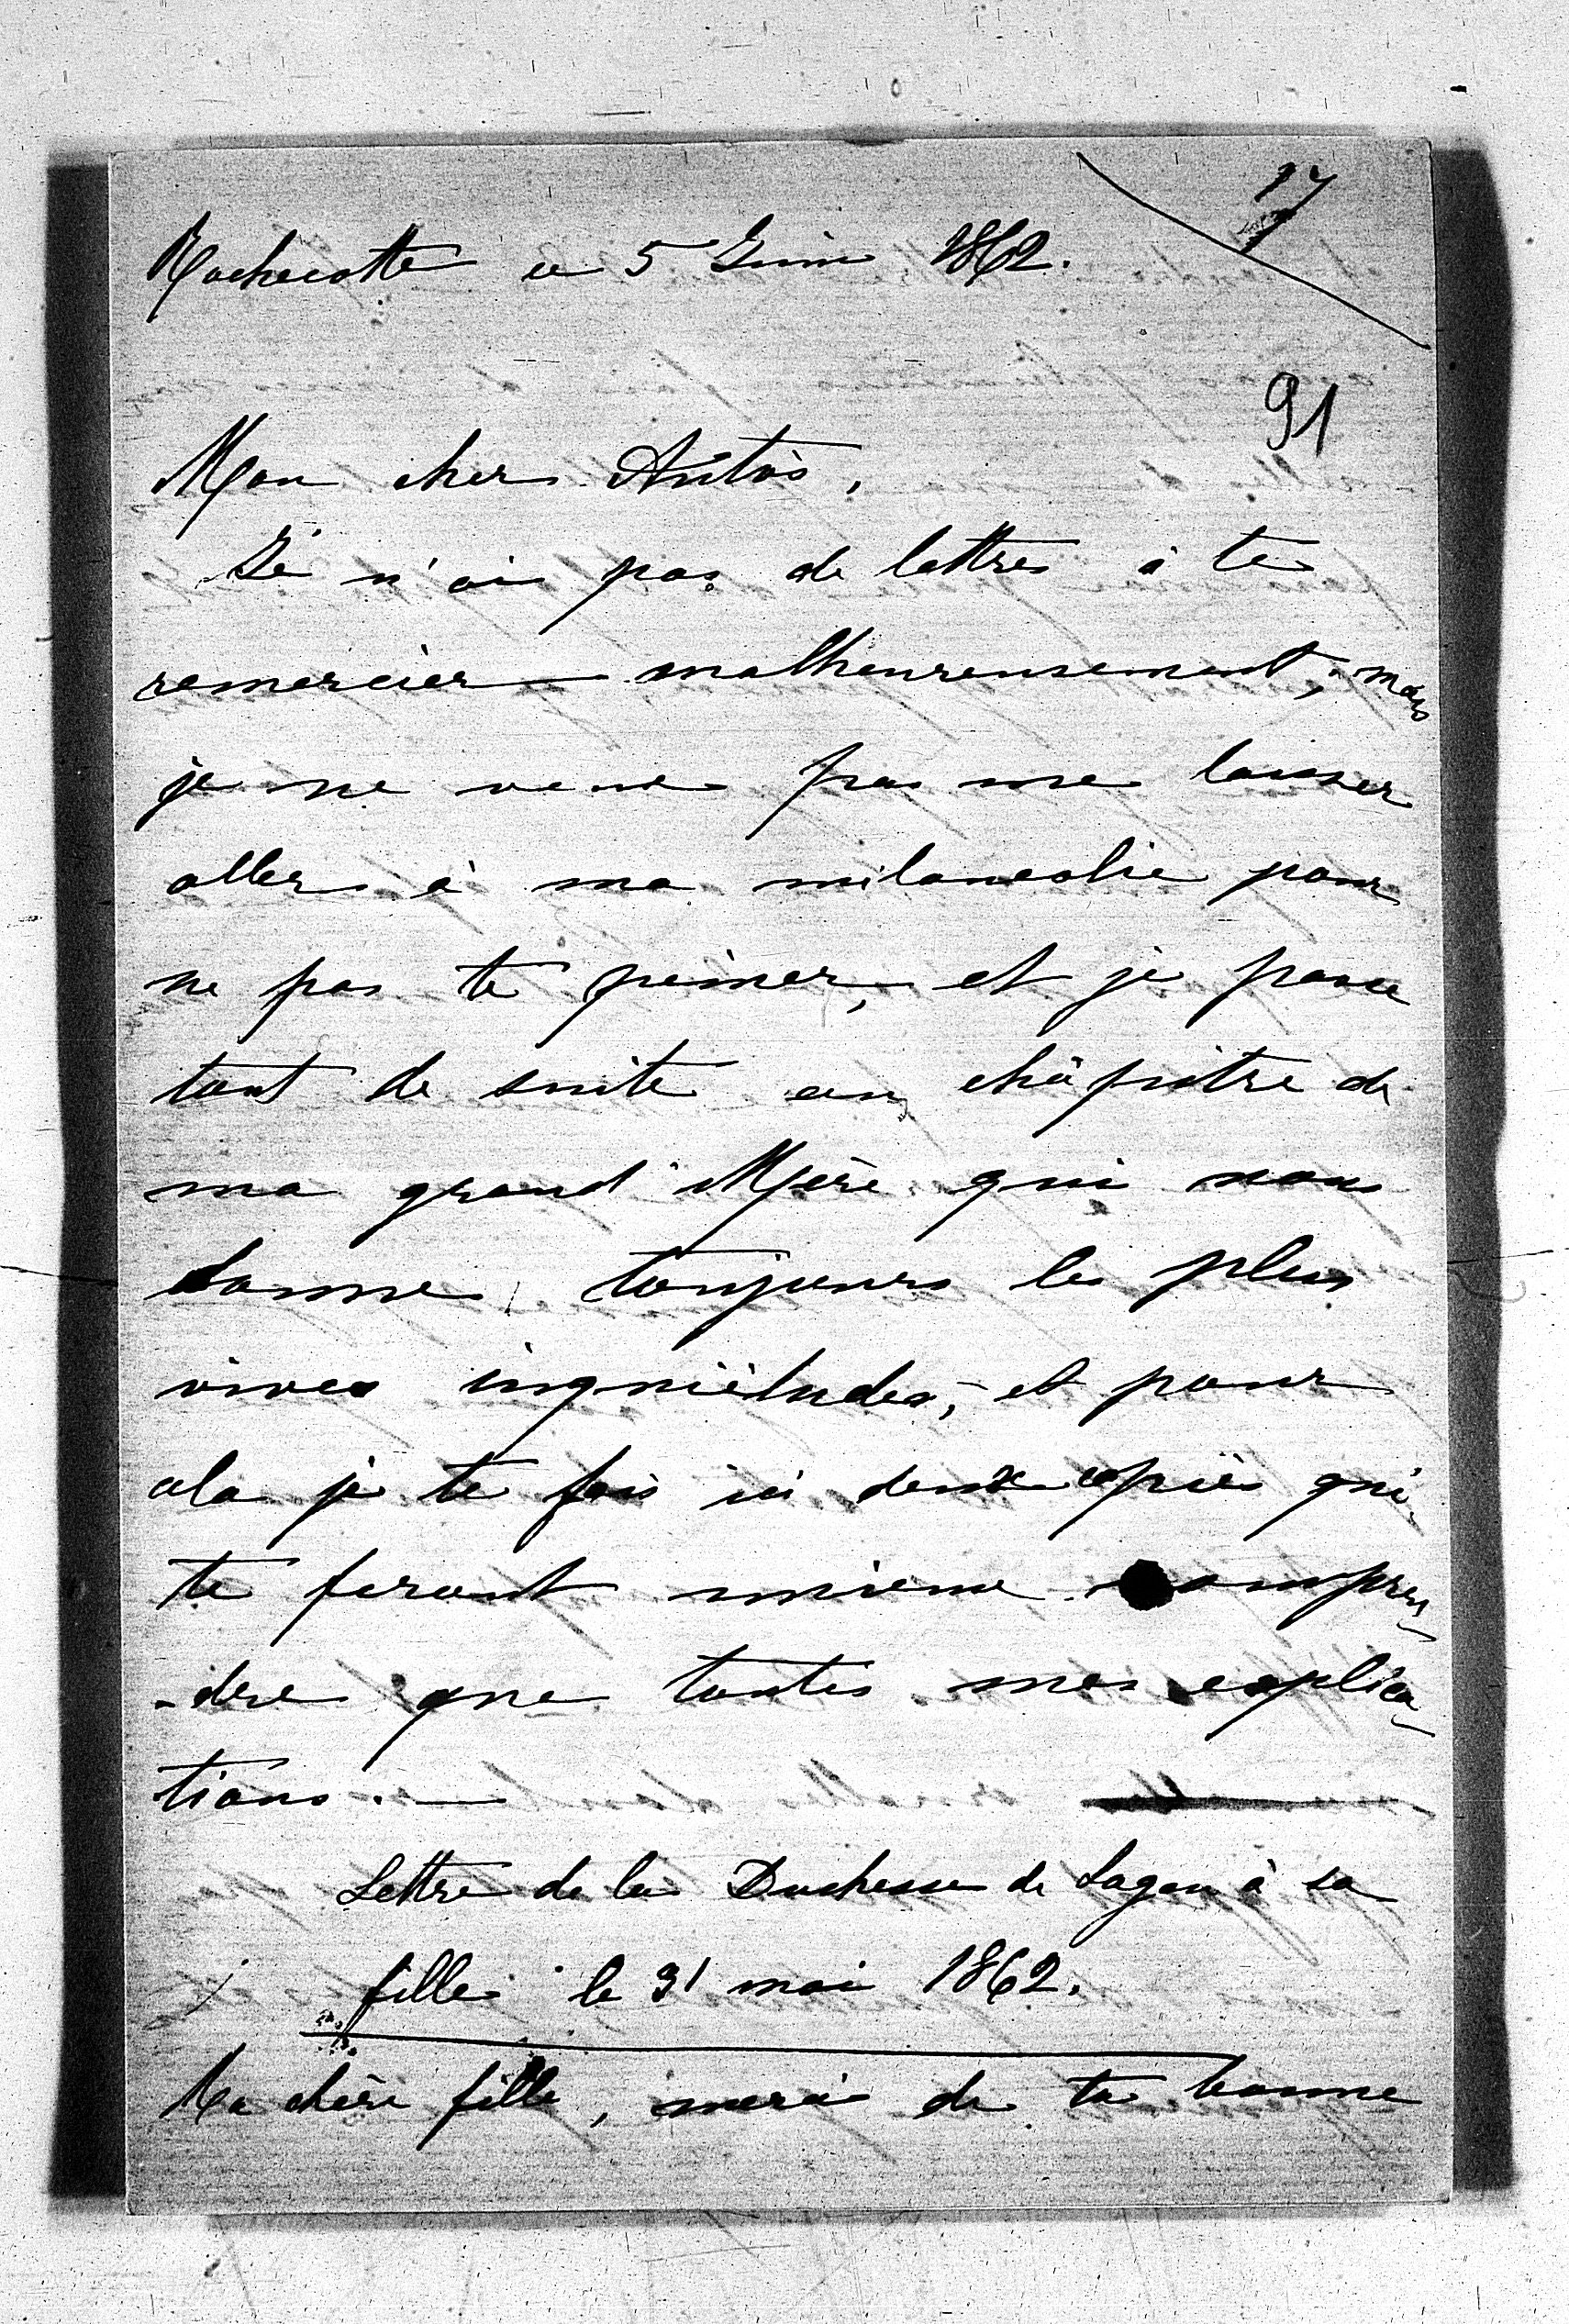 17
Rochecotte ce 5 Juin 1862.
91
Mon cher Antôs,
Je n'ai pas de lettres à te
remercier malheureusement, mais
je ne veux pas me laisser
aller à ma mélancolie pour
ne pas te peiner, et je passe
tout de suite au châpitre de
ma grand'Mère qui nous
donne toujours les plus
vives inquiètudes, et pour
cela je te fais ici deux copies qui
te feront mieux compren
-dre que toutes mes explica
tions. —
Lettre de la Duchesse de Sagan à sa
fille le 31 mai 1862.
Ma chère fille, merci de ta bonne